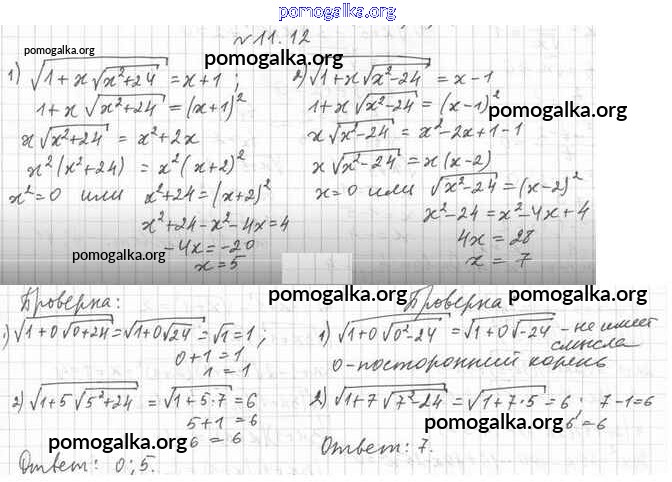 pomogalka.org
№11.12
pomogalka.org
pomogalka.org
1) √(1+x√(x²+24)) = x+1;
1+x√(x²+24) = (x+1)²
x√(x²+24) = x²+2x
x²(x²+24) = x²(x+2)²
x²=0 или x²+24=(x+2)²
x²+24-x²-4x=4
-4x=-20
x=5
pomogalka.org
2) √(1+x√(x²-24)) = x-1
1+x√(x²-24) = (x-1)²
pomogalka.org
x√(x²-24) = x²-2x+1-1
x√(x²-24) = x(x-2)
x=0 или √(x²-24)=(x-2)²
x²-24=x²-4x+4
4x=28
x=7
Проверка:
1) √(1+0√(0+24)) = √(1+0√24) = √1=1;
0+1=1
1=1
2) √(1+5√(5²+24)) = √(1+5·7) = 6
5+1=6
6=6
pomogalka.org
Ответ: 0; 5.
pomogalka.org
Проверка
pomogalka.org
1) √(1+0√(0²-24)) = √(1+0√-24) - не имеет
смысла
0-посторонний корень
2) √(1+7√(7²-24)) = √(1+7·5) = 6; 7-1=6
6=6
pomogalka.org
Ответ: 7.